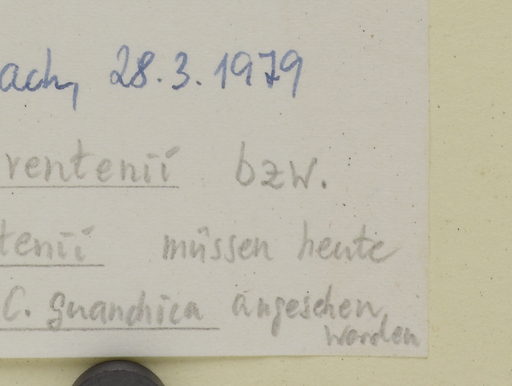 ach, 28.3.1979
ventenii bzw.
tenii müssen heute
C. guanchica angesehen
werden